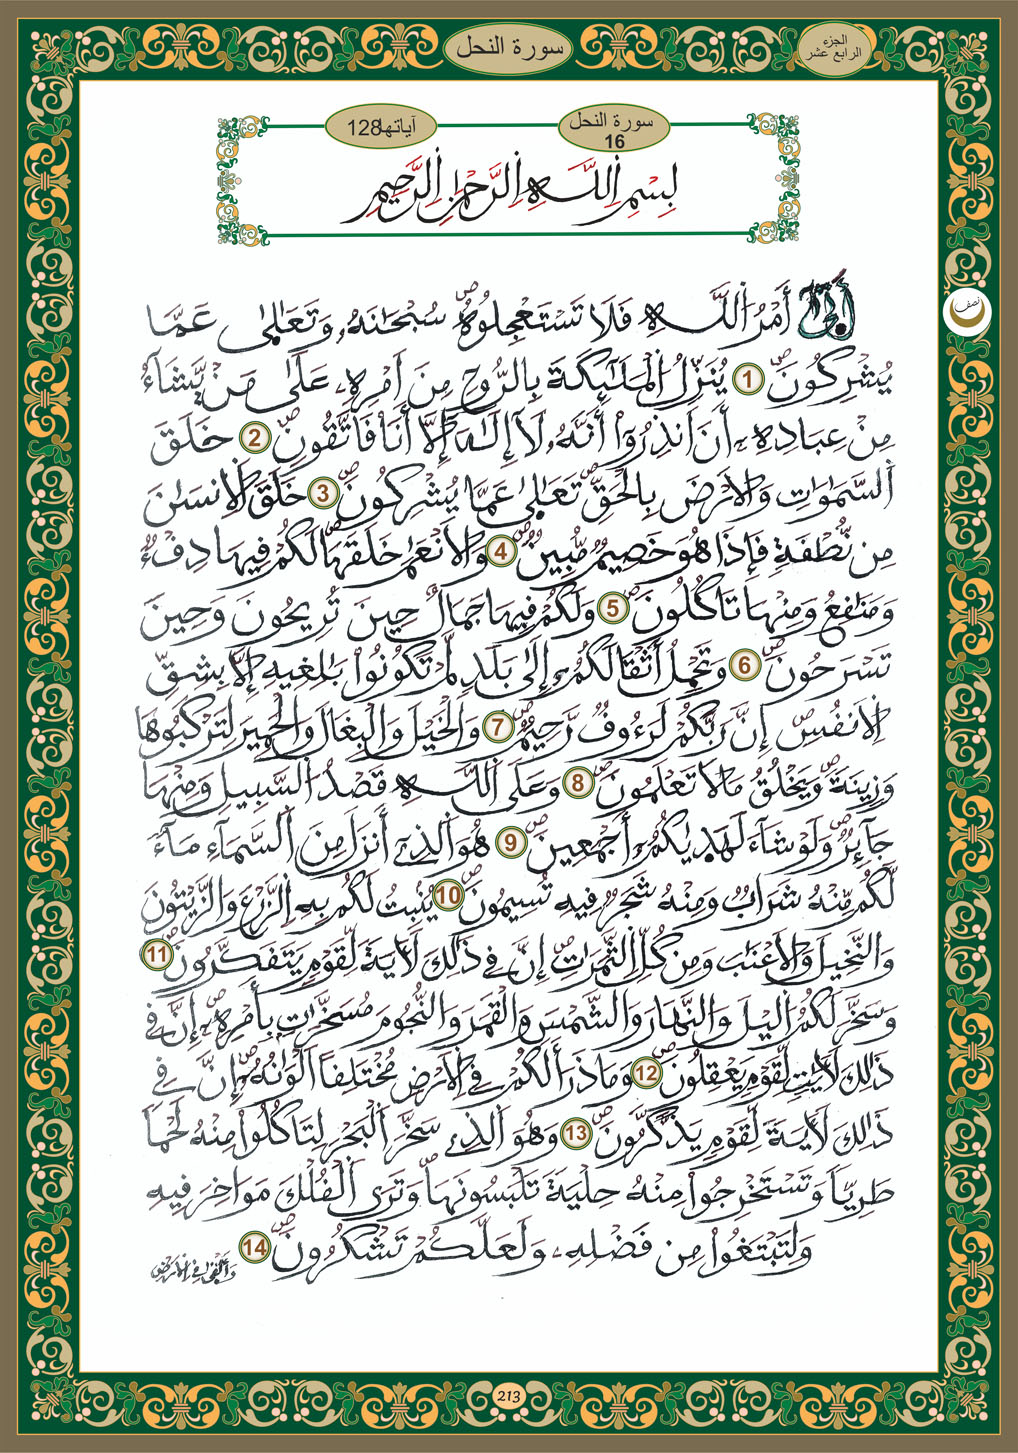 الجزء
الرابع عشر
سورة النحل
سورة النحل
16
آياتها 128
بِسْمِ اِ۬للَّهِ اِ۬لرَّحْمَٰنِ اِ۬لرَّحِيمِ
أَتَىٰ أَمْرُ اُ۬للَّهِ فَلَا تَسْتَعْجِلُوهُ صۖ سُبْحَٰنَهُۥ وَتَعَٰلَىٰ عَمَّا
نصف
يُشْرِكُونَ صۖ 1 يُنَزِّلُ اُ۬لْمَلَٰٓئِكَةَ بِالرُّوحِ مِنَ اَمْرِهِۦ عَلَىٰ مَنْ يَّشَآءُ
مِنْ عِبَادِهِۦٓ أَنَ اَنذِرُوٓاْ أَنَّهُۥ لَآ إِلَٰهَ إِلَّآ أَنَا فَاتَّقُونِ صۖ 2 خَلَقَ
اَ۬لسَّمَٰوَٰتِ وَالَارْضَ بِالْحَقِّ صۖ تَعَٰلَىٰ عَمَّا يُشْرِكُونَ صۖ 3 خَلَقَ اَ۬لِانسَٰنَ
مِن نُّطْفَةٍ فَإِذَا هُوَ خَصِيمٌ مُّبِينٌ صۖ 4 وَالَانْعَٰمَ خَلَقَهَا صۖ لَكُمْ فِيهَا دِفْءٌ
وَمَنَٰفِعُ وَمِنْهَا تَاكُلُونَ صۖ 5 وَلَكُمْ فِيهَا جَمَالٌ حِينَ تُرِيحُونَ وَحِينَ
تَسْرَحُونَ صۖ 6 وَتَحْمِلُ أَثْقَالَكُمُۥٓ إِلَىٰ بَلَدٍ لَّمْ تَكُونُواْ بَٰلِغِيهِ إِلَّا بِشِقِّ
اِ۬لَانفُسِ صۖ إِنَّ رَبَّكُمْ لَرَءُوفٌ رَّحِيمٌ صۖ 7 وَالْخَيْلَ وَالْبِغَالَ وَالْحَمِيرَ لِتَرْكَبُوهَا
وَزِينَةً صۖ وَيَخْلُقُ مَا لَا تَعْلَمُونَ صۖ 8 وَعَلَى اَ۬للَّهِ قَصْدُ اُ۬لسَّبِيلِ وَمِنْهَا
جَآئِرٌ صۖ وَلَوْ شَآءَ لَهَدَيٰكُمُۥٓ أَجْمَعِينَ صۖ 9 هُوَ اَ۬لذِےٓ أَنزَلَ مِنَ اَ۬لسَّمَآءِ مَآءً
لَّكُم مِّنْهُ شَرَابٌ وَمِنْهُ شَجَرٌ فِيهِ تُسِيمُونَ صۖ 10 يُنۢبِتُ لَكُم بِهِ اِ۬لزَّرْعَ وَالزَّيْتُونَ
وَالنَّخِيلَ وَالَاعْنَٰبَ وَمِن كُلِّ اِ۬لثَّمَرَٰتِ صۖ إِنَّ فِے ذَٰلِكَ لَأٓيَةً لِّقَوْمٍ يَتَفَكَّرُونَ صۖ 11
وَسَخَّرَ لَكُمُ اُ۬ليْلَ وَالنَّهَارَ وَالشَّمْسَ وَالْقَمَرَ وَالنُّجُومَ مُسَخَّرَٰتٍۢ بِأَمْرِهِۦٓ صۖ إِنَّ فِے
ذَٰلِكَ لَأٓيَٰتٍ لِّقَوْمٍ يَعْقِلُونَ صۖ 12 وَمَا ذَرَأَ لَكُمْ فِے اِ۬لَارْضِ مُخْتَلِفاً اَلْوَٰنُهُۥٓ صۖ إِنَّ فِے
ذَٰلِكَ لَأٓيَةً لِّقَوْمٍ يَذَّكَّرُونَ صۖ 13 وَهُوَ اَ۬لذِے سَخَّرَ اَ۬لْبَحْرَ لِتَاكُلُواْ مِنْهُ لَحْماً
طَرِيّاً وَتَسْتَخْرِجُواْ مِنْهُ حِلْيَةً تَلْبَسُونَهَا صۖ وَتَرَى اَ۬لْفُلْكَ مَوَاخِرَ فِيهِ
وَلِتَبْتَغُواْ مِن فَضْلِهِۦ وَلَعَلَّكُمْ تَشْكُرُونَ صۖ 14
وَأَلْقَىٰ فِے اِ۬لَارْضِ
213